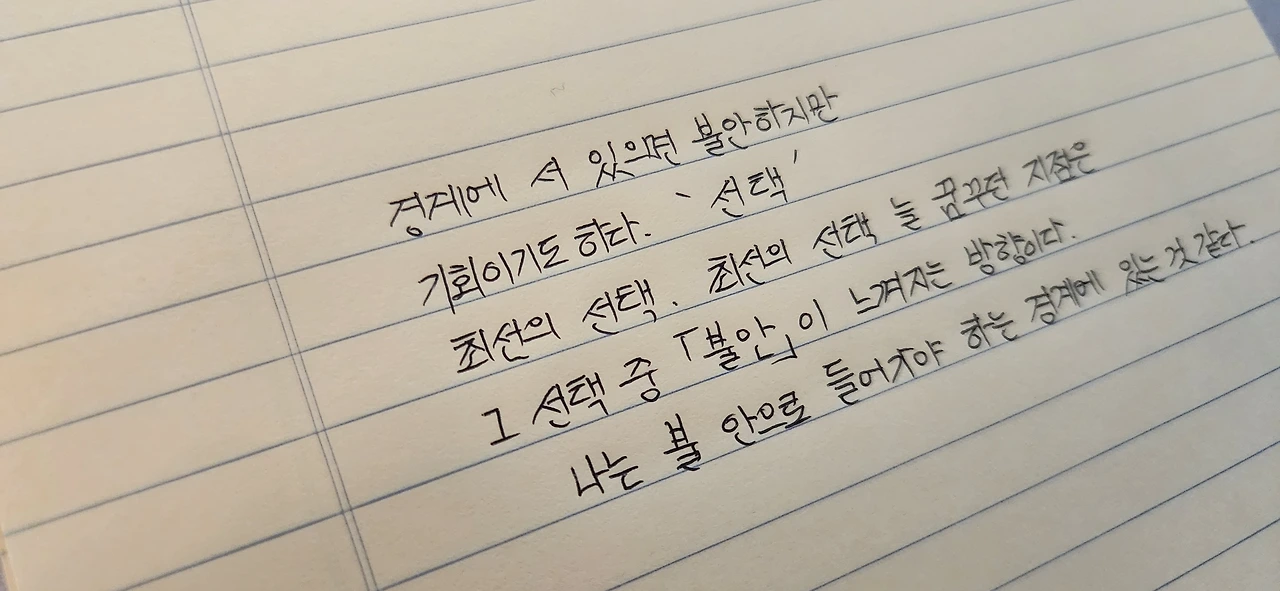 경계에 서 있으면 불안하지만
기회이기도 하다. '선택'
최선의 선택. 최선의 선택 늘 꿈꾸던 지점은
그 선택 중 「불안」이 느껴지는 방향이다.
나는 불 안으로 들어가야 하는 경계에 있는 것 같다.